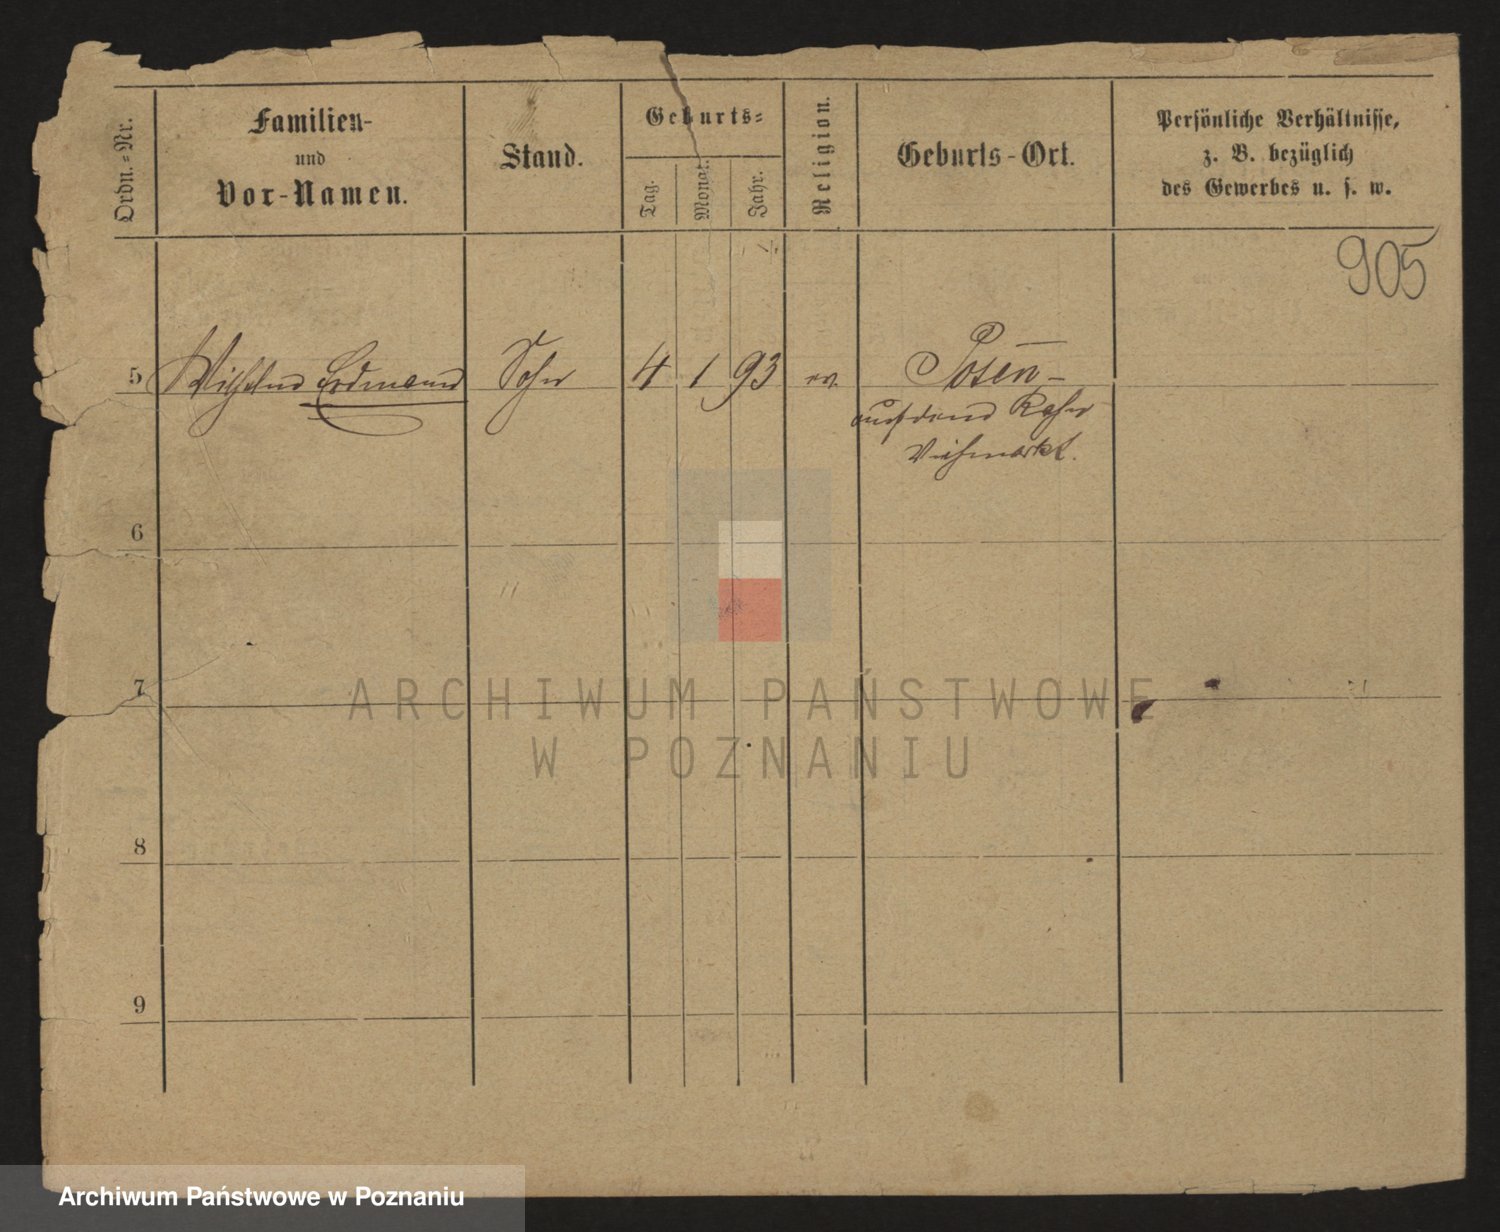 Ordn.-Nr.
Familien-
und
Vor-Namen.
Stand.
Geburts-
Tag.
Monat.
Jahr.
Religion.
Geburts-Ort.
Persönliche Verhältnisse,
z. B. bezüglich
des Gewerbes u. s. w.
905
5 Wilhelm Erdmann Sohn 4 1 93 ev. Posen
auf dem Kahn
Viehmarkt.
6
7
8
9
ARCHIWUM PAŃSTWOWE
W POZNANIU
Archiwum Państwowe w Poznaniu